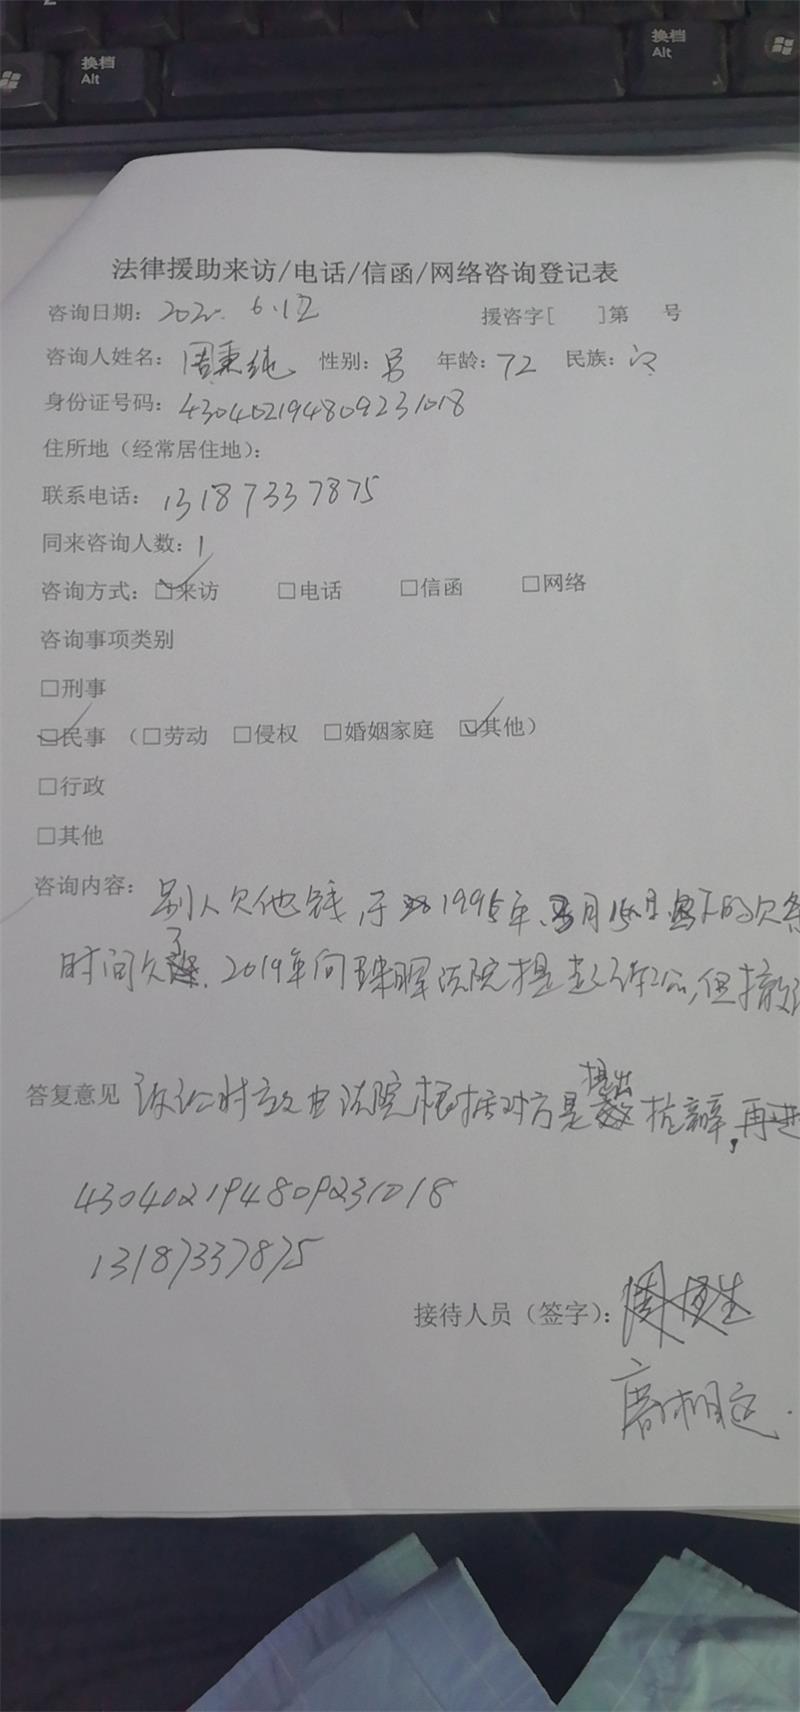 换档
Alt
换档
Alt
法律援助来访/电话/信函/网络咨询登记表
咨询日期：202 . 6.12
援咨字[ ]第 号
咨询人姓名：周秉纯 性别：男 年龄：72 民族：汉
身份证号码：430402194809231018
住所地（经常居住地）：
联系电话：13187337875
同来咨询人数：1
咨询方式：□来访 □电话 □信函 □网络
咨询事项类别
□刑事
□民事 （□劳动 □侵权 □婚姻家庭 □其他）
□行政
□其他
咨询内容：别人欠他钱，于 1995年 月 日 下的欠条
时间久了．2019年向珠晖法院提起诉讼，但撤
答复意见 诉讼时效由法院根据对方是 提出 抗辩，再进
430402194809231018
13187337875
接待人员（签字）：